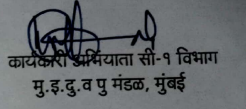 कार्यकारी अभियाता सी-१ विभाग
मु.इ.दु.व पु मंडळ, मुंबई